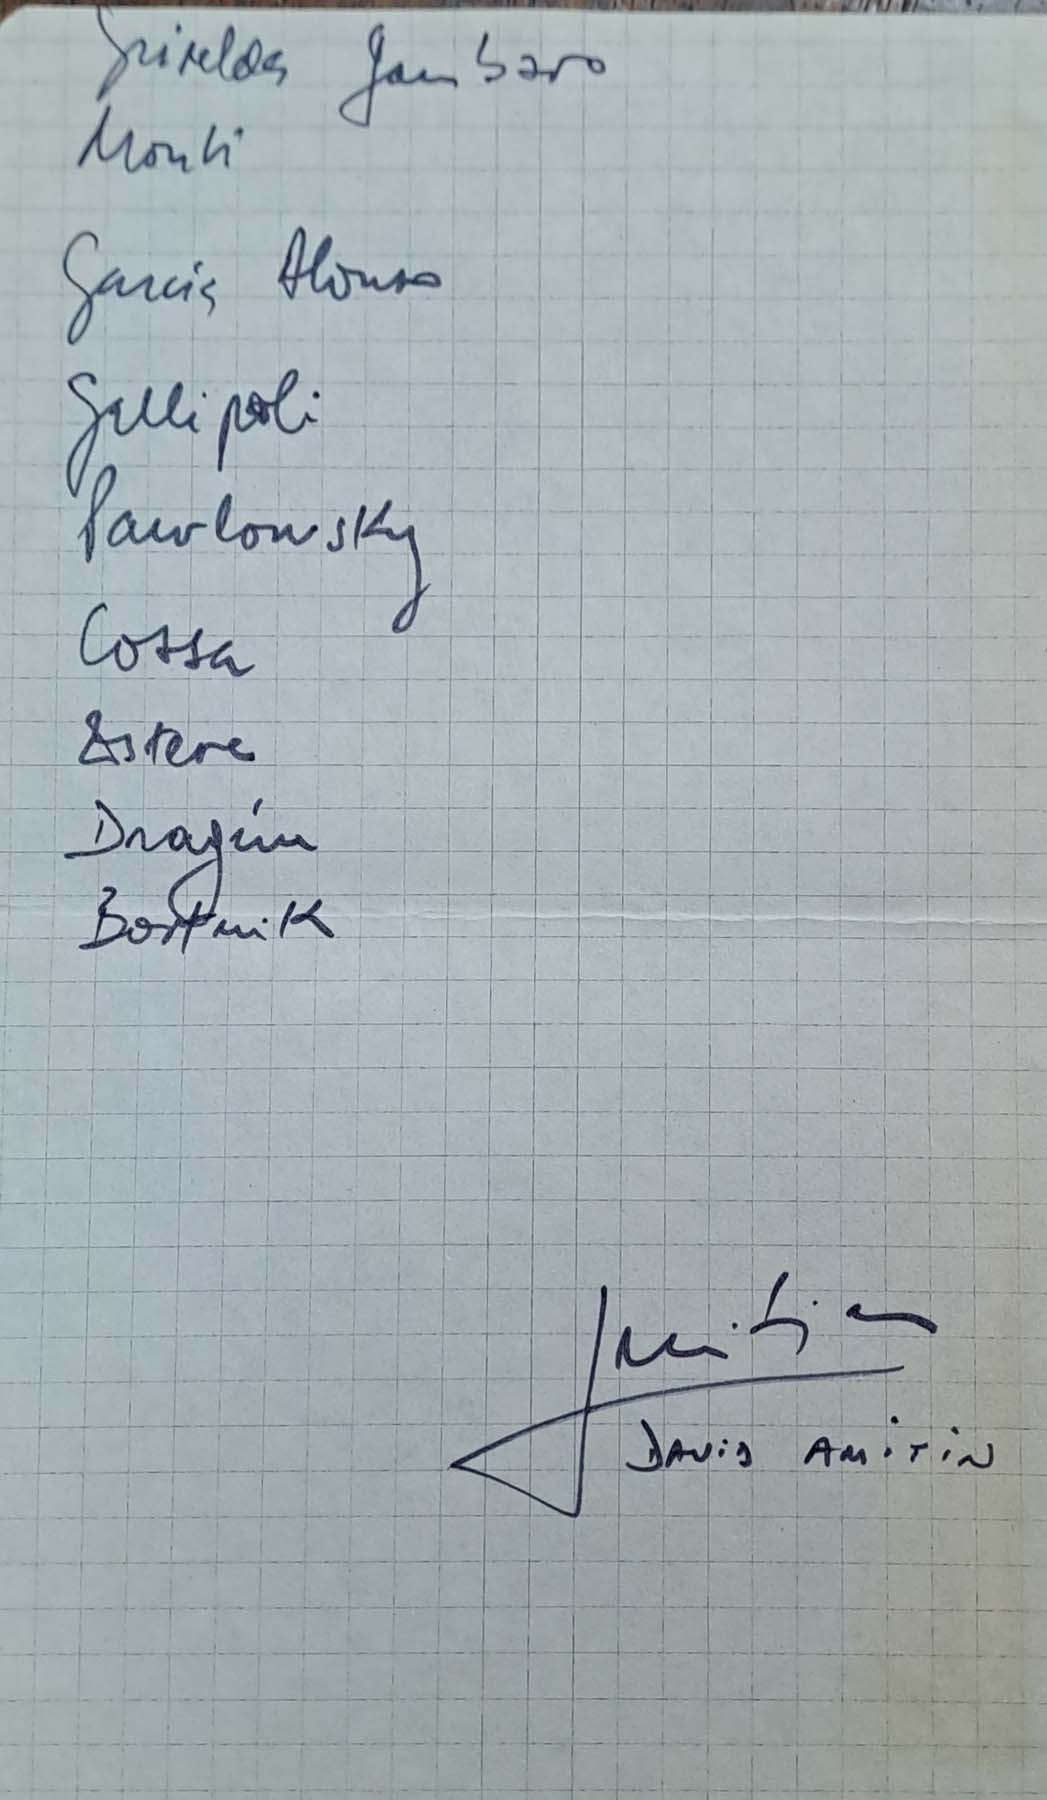 Griselda Gambaro
Monti
Garcia Alonso
Gallipoli
Pawlowsky
Cossa
Esteve
Dragún
Bortnik
DAVID AMITIN